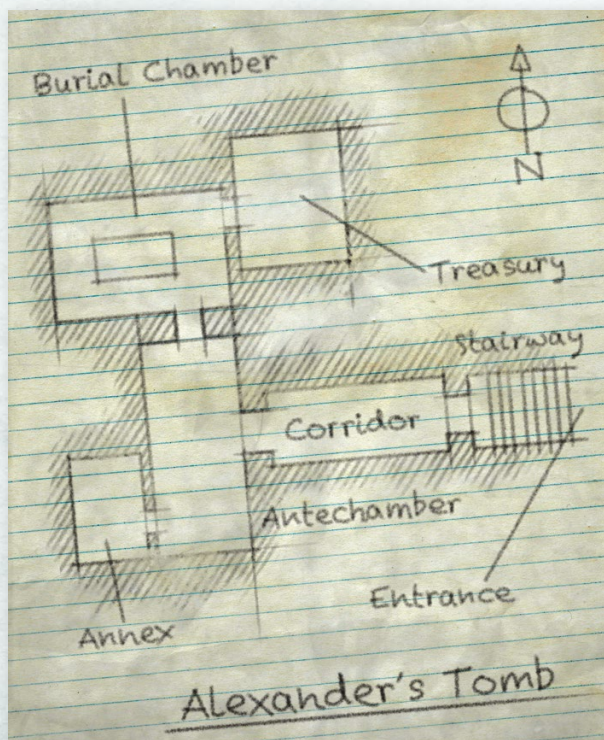 Burial Chamber
N
Treasury
Stairway
Corridor
Antechamber
Entrance
Annex
Alexander's Tomb